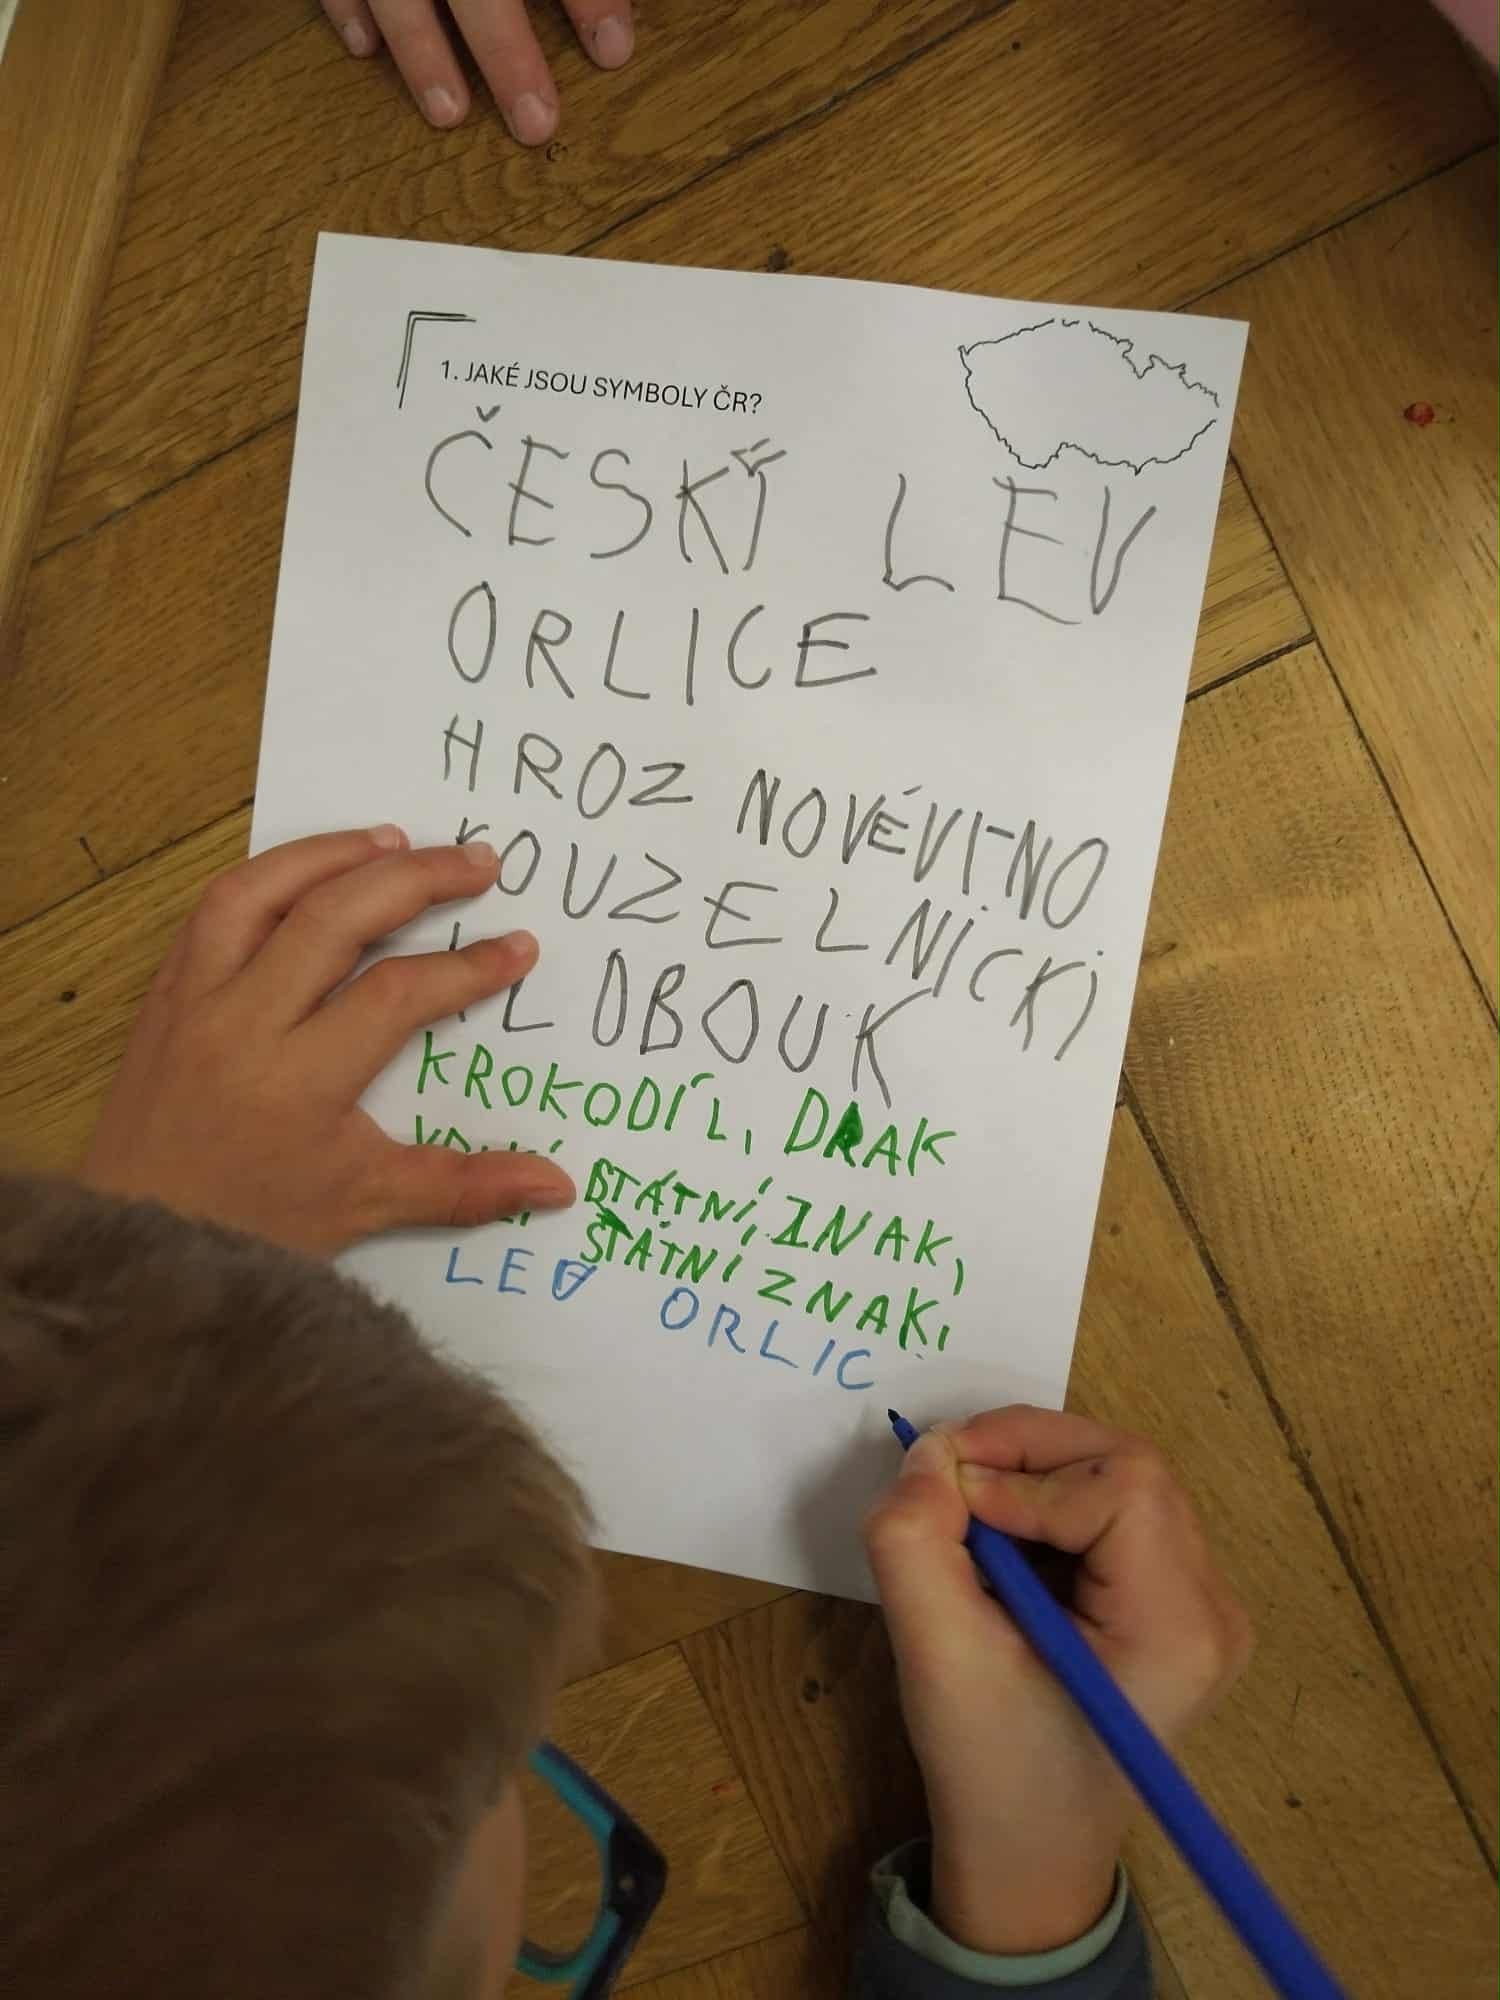 1. JAKÉ JSOU SYMBOLY ČR?
ČESKÝ LEV
ORLICE
HROZ NOVÉVÍNO
KOUZELNICKI
KLOBOUK
KROKODÍL, DRAK
STÁTNÍ, ZNAK,
STÁTNÍ ZNAK,
LEV ORLIC